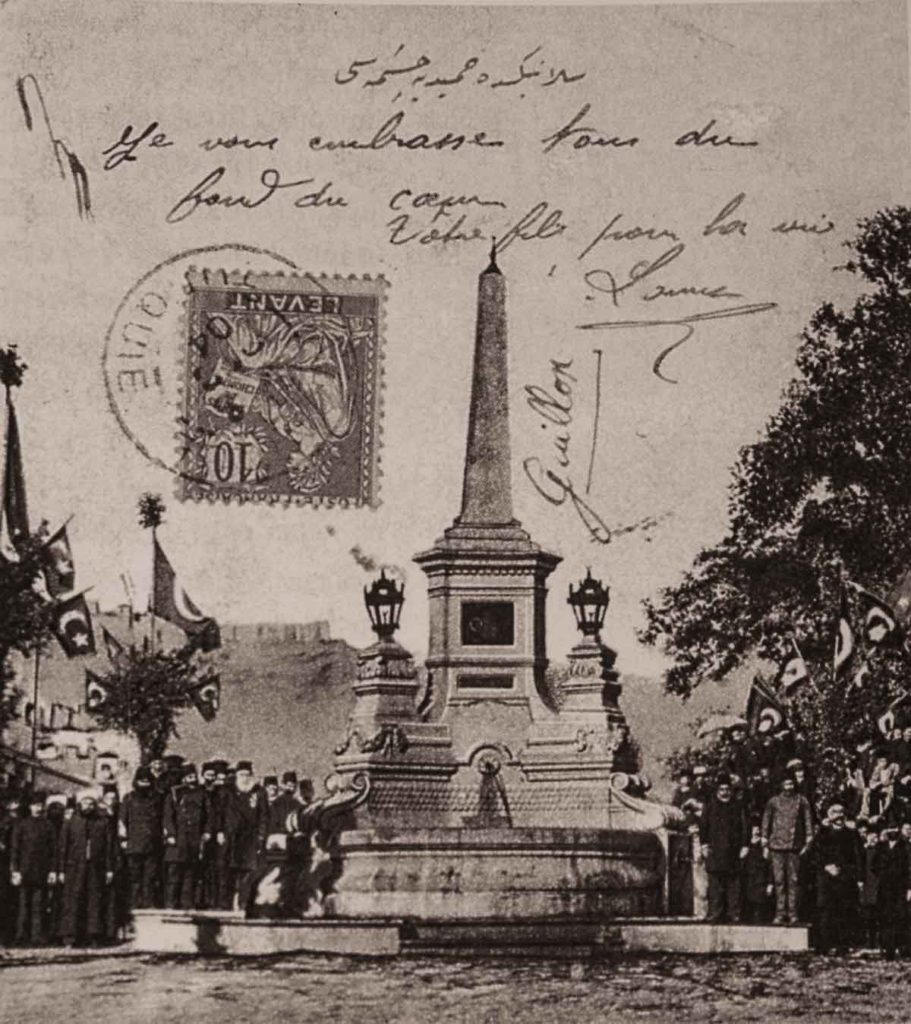 سلانیکده حمیدیه چشمه سی
Je vous embrasse tous du
fond du cœur
Votre fils pour la vie
Louis
Guillon
LEVANT
10
POSTE FRANÇAISE